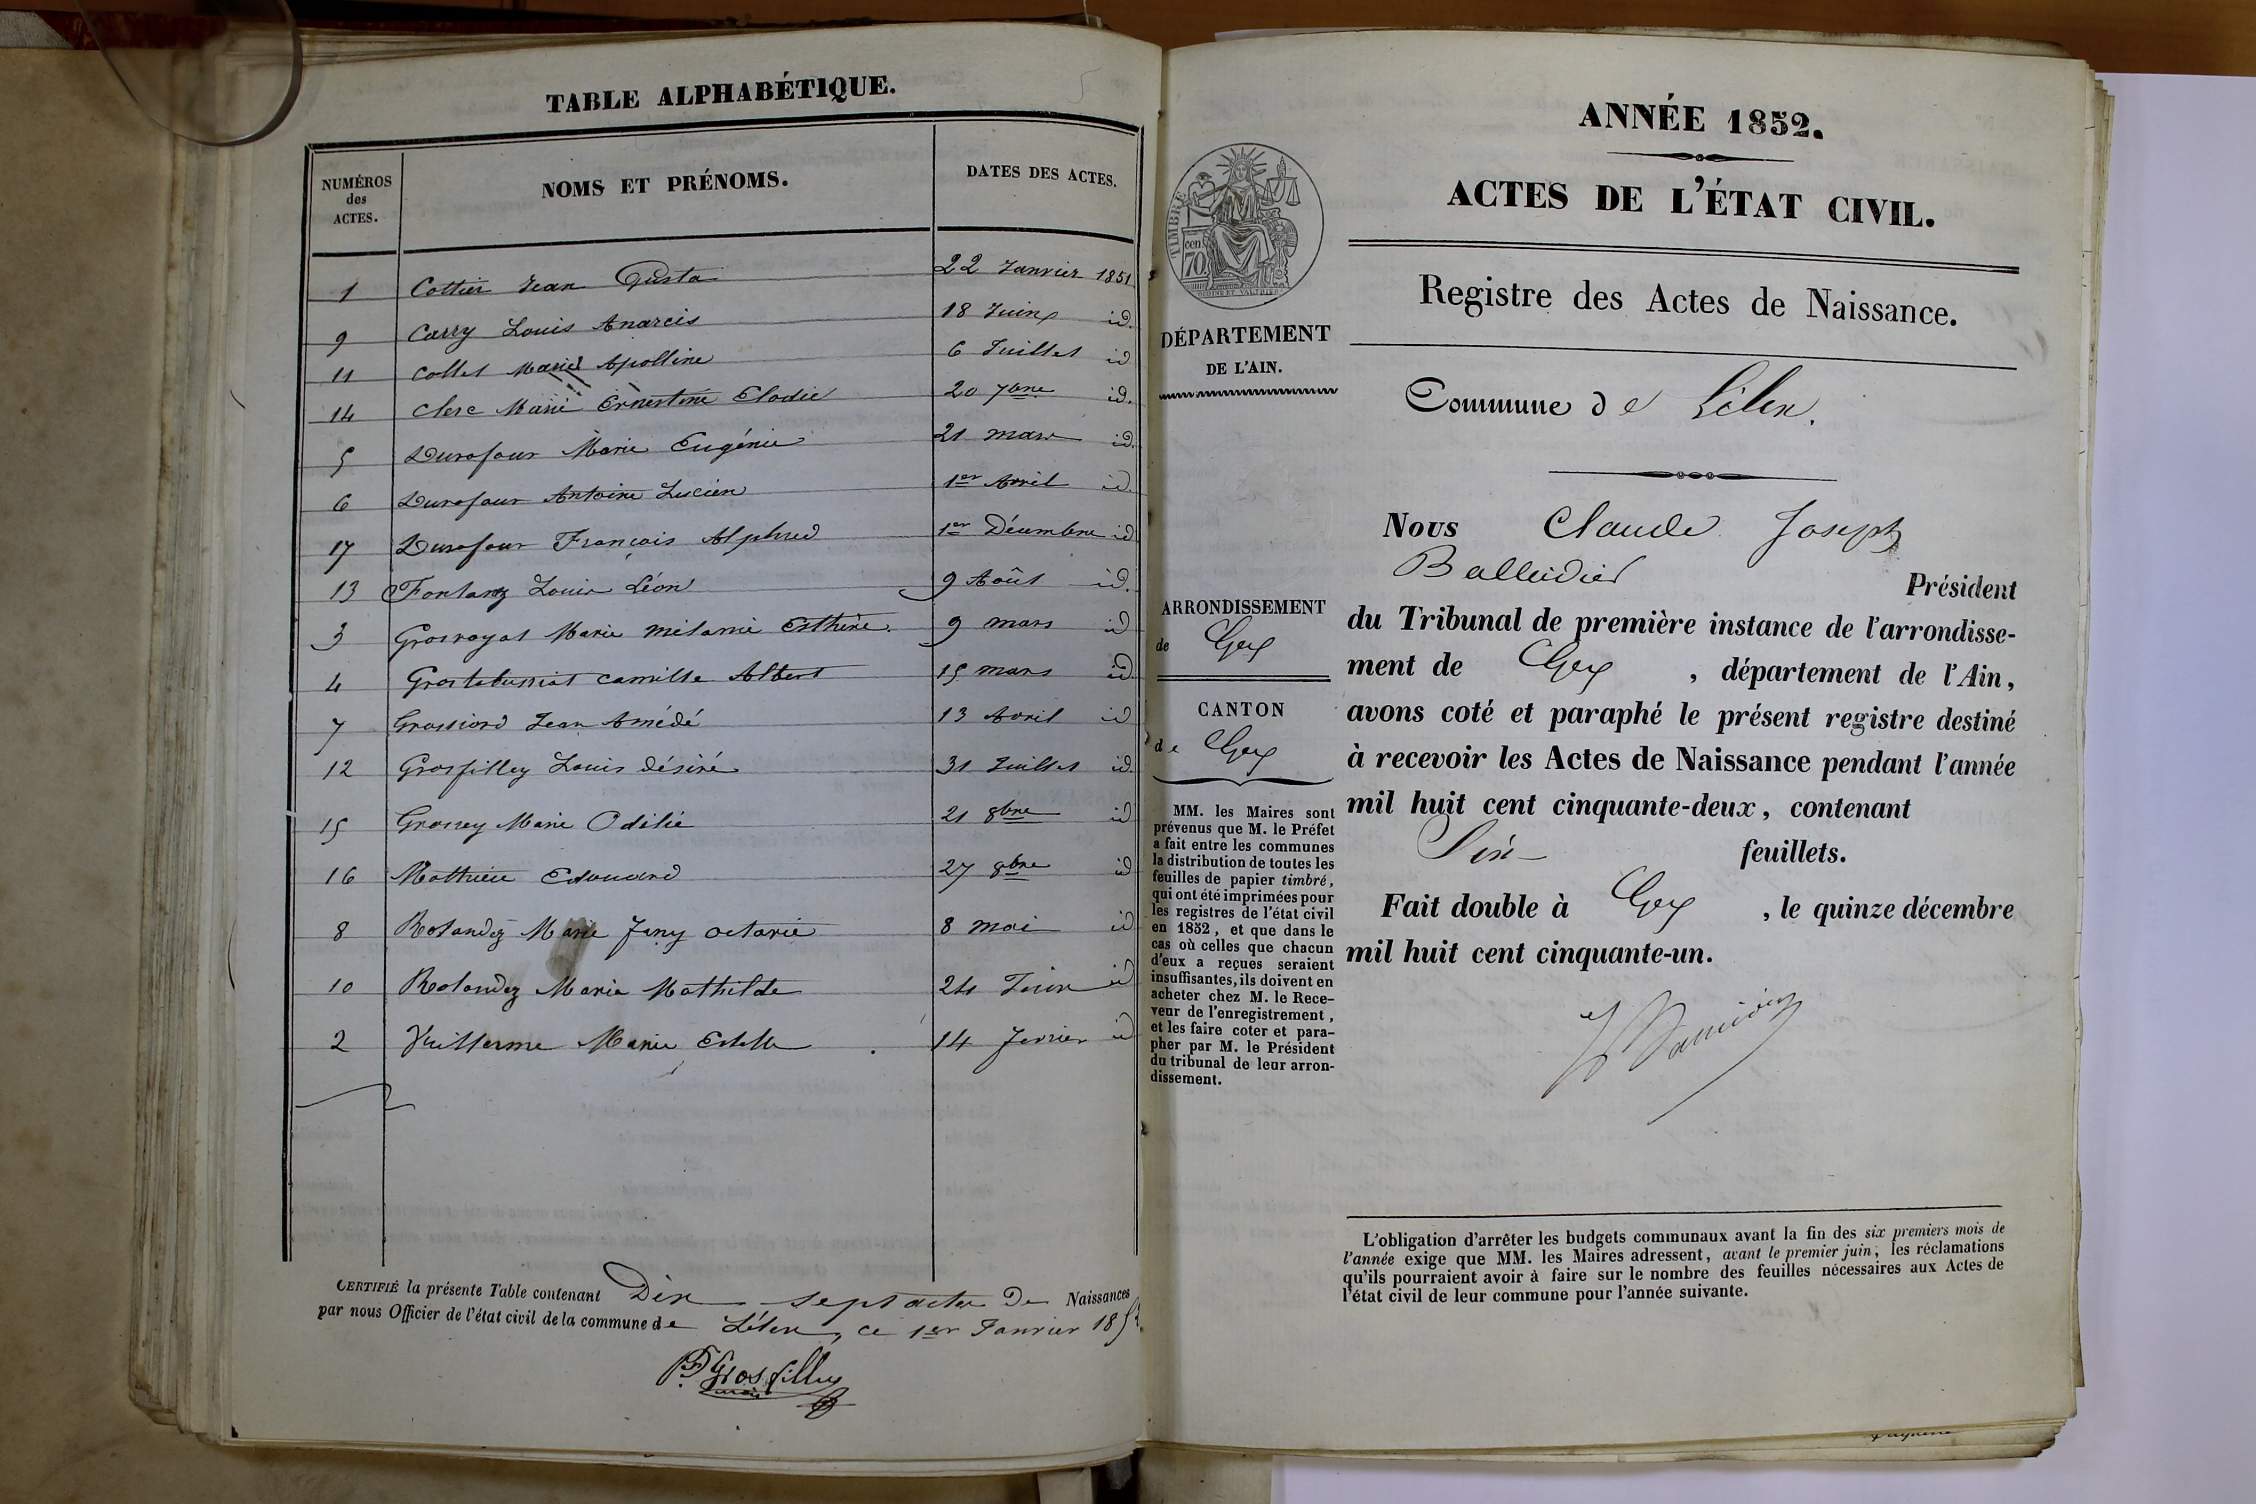 TABLE ALPHABÉTIQUE.
NUMÉROS des ACTES.
NOMS ET PRÉNOMS.
DATES DES ACTES.
1 Cottier Jean Gusta 22 Janvier 1851
9 Carry Louis Anarcis 18 Juin id.
11 Collet Marie Apolline 6 Juillet id
14 Clerc Marie Ernestine Elodie 20 7bre id.
5 Durafour Marie Eugénie 21 mars id.
6 Durafour Antoine Lucien 1er Avril id.
17 Durafour François Alphred 1er Décembre id
13 Fontanez Louis Léon 9 Août id.
3 Grosroyat Marie mélanie Esthère. 9 mars id
4 Grostabussiat camille Albert 15 mars id
7 Grossiord Jean Amédé 13 Avril id
12 Grosfilley Louis désiré 31 Juillet id.
15 Grossey Marie Odilie 21 8bre id
16 Mathieu Edouard 27 8bre id
8 Rolandez Marie Fany octavie 8 mai id
10 Rolandez Marie Mathilde 24 Juin id
2 Vuillerme Marie Estelle 14 fevrier id
CERTIFIÉ la présente Table contenant Dix sept actes De Naissances
par nous Officier de l'état civil de la commune de Lélex, ce 1er Janvier 185
Grosfilley
ANNÉE 1852.
ACTES DE L'ÉTAT CIVIL.
Registre des Actes de Naissance.
TIMBRE
cen.
70
DÉPARTEMENT
DE L'AIN.
Commune de Lélex.
ARRONDISSEMENT
de Gex
CANTON
de Gex
MM. les Maires sont
prévenus que M. le Préfet
a fait entre les communes
la distribution de toutes les
feuilles de papier timbré,
qui ont été imprimées pour
les registres de l'état civil
en 1852, et que dans le
cas où celles que chacun
d'eux a reçues seraient
insuffisantes, ils doivent en
acheter chez M. le Rece-
veur de l'enregistrement,
et les faire coter et para-
pher par M. le Président
du tribunal de leur arron-
dissement.
Nous Claude Joseph
Balleidier Président
du Tribunal de première instance de l'arrondisse-
ment de Gex, département de l'Ain,
avons coté et paraphé le présent registre destiné
à recevoir les Actes de Naissance pendant l'année
mil huit cent cinquante-deux, contenant
Six feuillets.
Fait double à Gex, le quinze décembre
mil huit cent cinquante-un.
L'obligation d'arrêter les budgets communaux avant la fin des six premiers mois de
l'année exige que MM. les Maires adressent, avant le premier juin, les réclamations
qu'ils pourraient avoir à faire sur le nombre des feuilles nécessaires aux Actes de
l'état civil de leur commune pour l'année suivante.